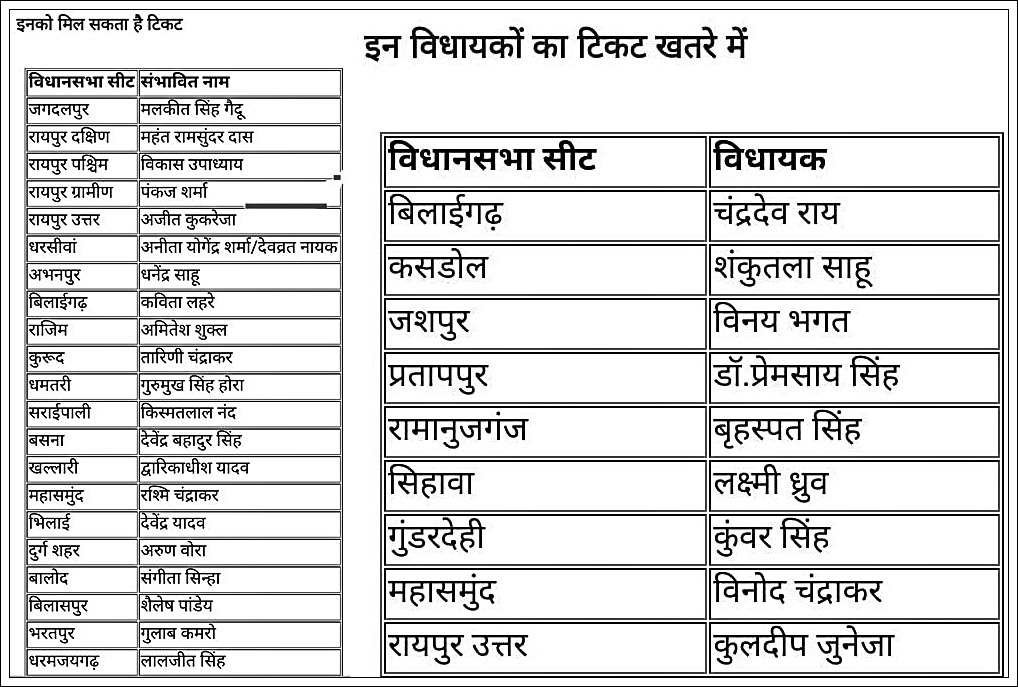 इनको मिल सकता है टिकट
विधानसभा सीट संभावित नाम
जगदलपुर मलकीत सिंह गैदू
रायपुर दक्षिण महंत रामसुंदर दास
रायपुर पश्चिम विकास उपाध्याय
रायपुर ग्रामीण पंकज शर्मा
रायपुर उत्तर अजीत कुकरेजा
धरसीवां अनीता योगेंद्र शर्मा/देवव्रत नायक
अभनपुर धनेंद्र साहू
बिलाईगढ़ कविता लहरे
राजिम अमितेश शुक्ल
कुरूद तारिणी चंद्राकर
धमतरी गुरुमुख सिंह होरा
सराईपाली किस्मतलाल नंद
बसना देवेंद्र बहादुर सिंह
खल्लारी द्वारिकाधीश यादव
महासमुंद रश्मि चंद्राकर
भिलाई देवेंद्र यादव
दुर्ग शहर अरुण वोरा
बालोद संगीता सिन्हा
बिलासपुर शैलेष पांडेय
भरतपुर गुलाब कमरो
धरमजयगढ़ लालजीत सिंह
इन विधायकों का टिकट खतरे में
विधानसभा सीट विधायक
बिलाईगढ़ चंद्रदेव राय
कसडोल शंकुतला साहू
जशपुर विनय भगत
प्रतापपुर डॉ.प्रेमसाय सिंह
रामानुजगंज बृहस्पत सिंह
सिहावा लक्ष्मी ध्रुव
गुंडरदेही कुंवर सिंह
महासमुंद विनोद चंद्राकर
रायपुर उत्तर कुलदीप जुनेजा